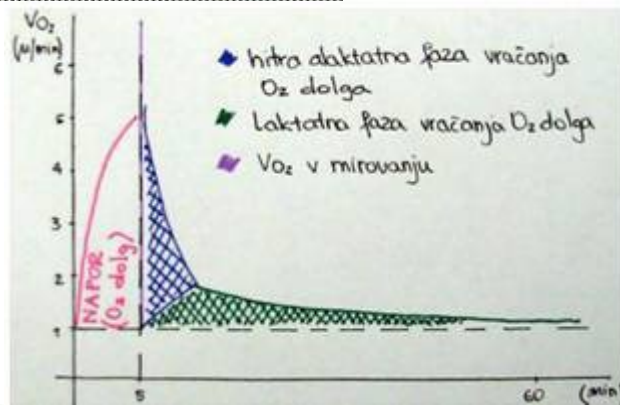 VO₂
(l/min)
6
5
4
3
2
1
hitra alaktatna faza vračanja
O₂ dolga
Laktatna faza vračanja O₂ dolga
VO₂ v mirovanju
NAPOR
(O₂ dolg)
5
60
(min)